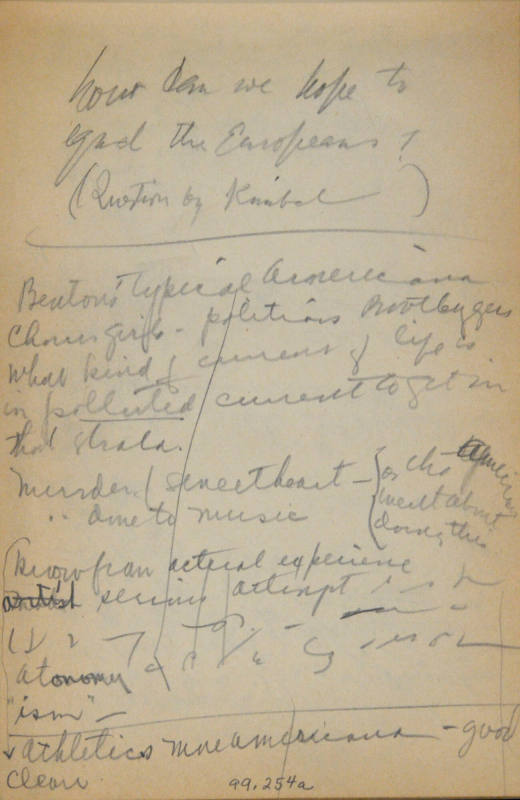 how can we hope to
equal the Europeans?
(Question by Kimbal )
Benton's typical Americana
Chorus girls - politions Bootleggers
What kind of current of life is
in polluted current to get in
that strata.
Murder / sweetheart - as the American
" done to music went about
doing this
Know from actual experience
serious attempt
atonomy
"ism" -
athletics more americana - good
clean
99.254a